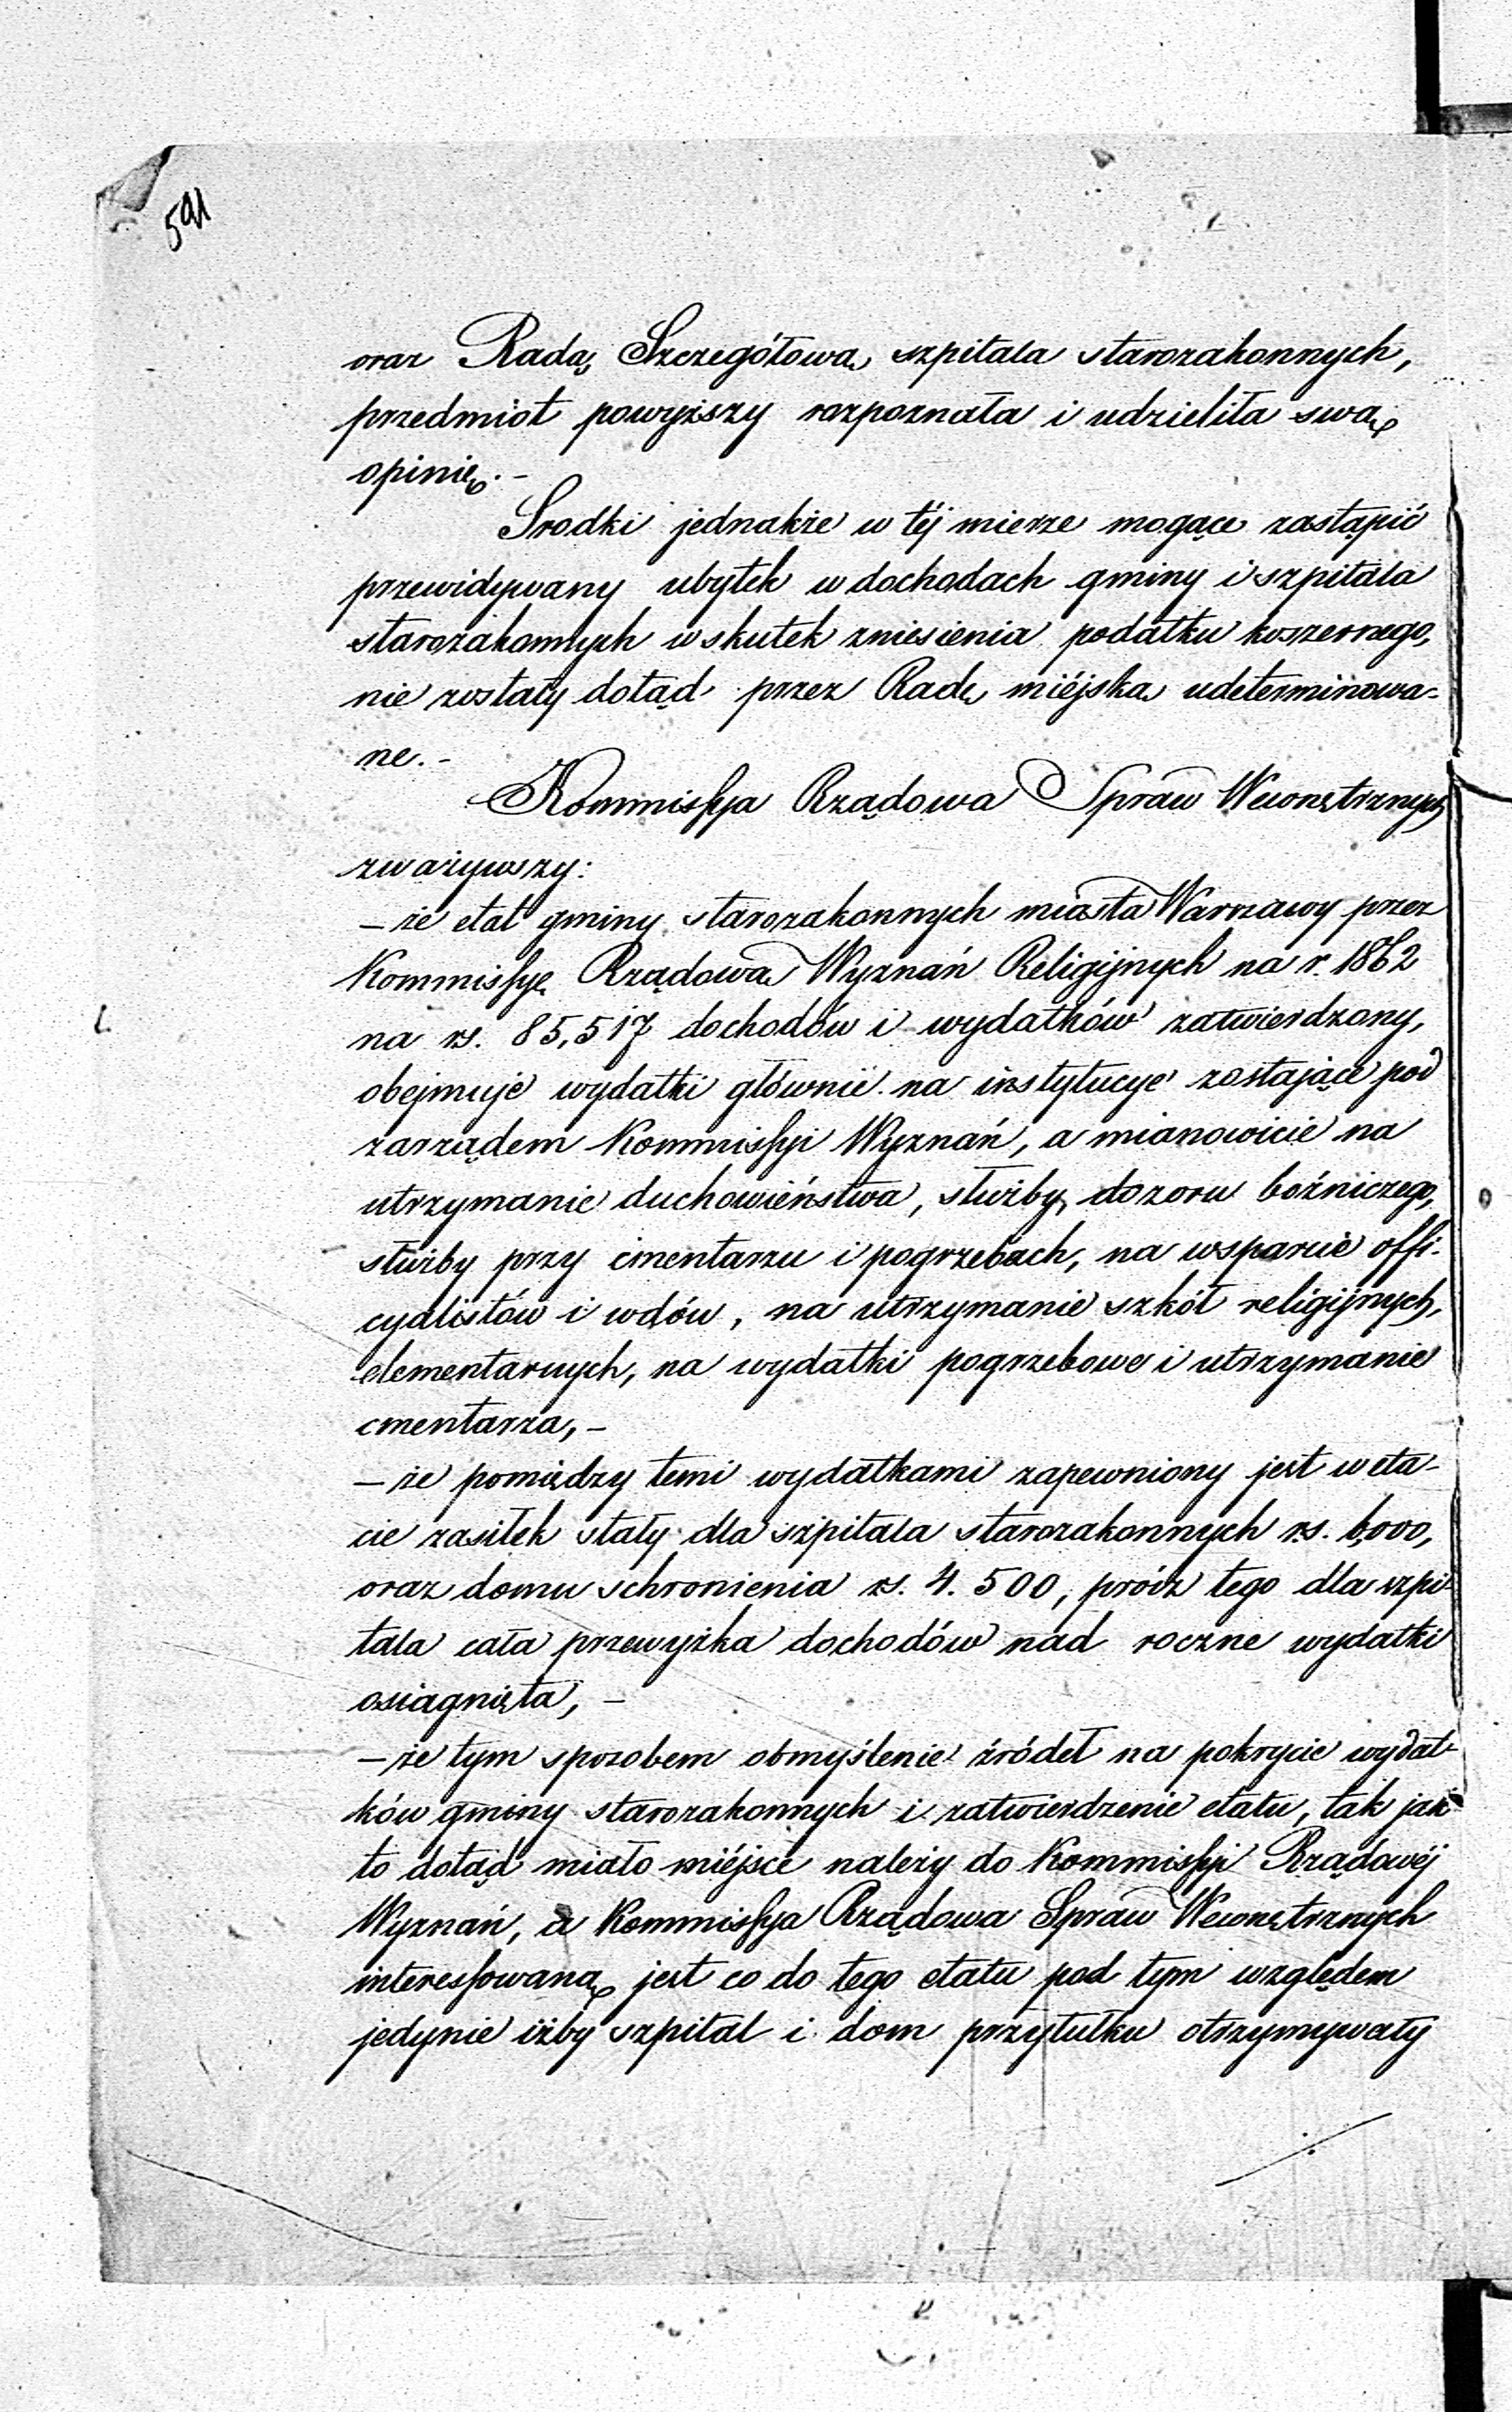 591
oraz Radą Szczegółową szpitala starozakonnych,
przedmiot powyższy rozpoznała i udzieliła swą
opinię. -
Srodki jednakże w téj mierze mogące zastąpić
przewidywany ubytek w dochodach gminy i szpitala
starozakonnych w skutek zniesienia podatku koszernego,
nie zostały dotąd przez Radę miéjską udeterminowa-
ne. -
Kommissya Rządowa Spraw Wewnętrznych
zważywszy:
- że etat gminy starozakonnych miasta Warszawy przez
Kommissyę Rządową Wyznań Religijnych na r. 1862
na rs. 85,517 dochodów i wydatków zatwierdzony,
obejmuje wydatki głównie na instytucye zostające pod
zarządem Kommissyi Wyznań, a mianowicie na
utrzymanie duchowieństwa, służby dozoru bóźniczego,
służby przy cmentarzu i pogrzebach, na wsparcie offi-
cyalistów i wdów, na utrzymanie szkół religijnych,
elementarnych, na wydatki pogrzebowe i utrzymanie
cmentarza, -
- że pomiędzy temi wydatkami zapewniony jest w eta-
cie zasiłek stały dla szpitala starozakonnych rs. 6,000,
oraz domu schronienia rs. 4.500, prócz tego dla szpi-
tala cała przewyżka dochodów nad roczne wydatki
osiągnięta, -
- że tym sposobem obmyślenie źródeł na pokrycie wydat-
ków gminy starozakonnych i zatwierdzenie etatu, tak jak
to dotąd miało miéjsce należy do Kommissyi Rządowéj
Wyznań, a Kommissya Rządowa Spraw Wewnętrznych
interessowaną jest co do tego etatu pod tym względem
jedynie iżby szpital i dom przytułku otrzymywały